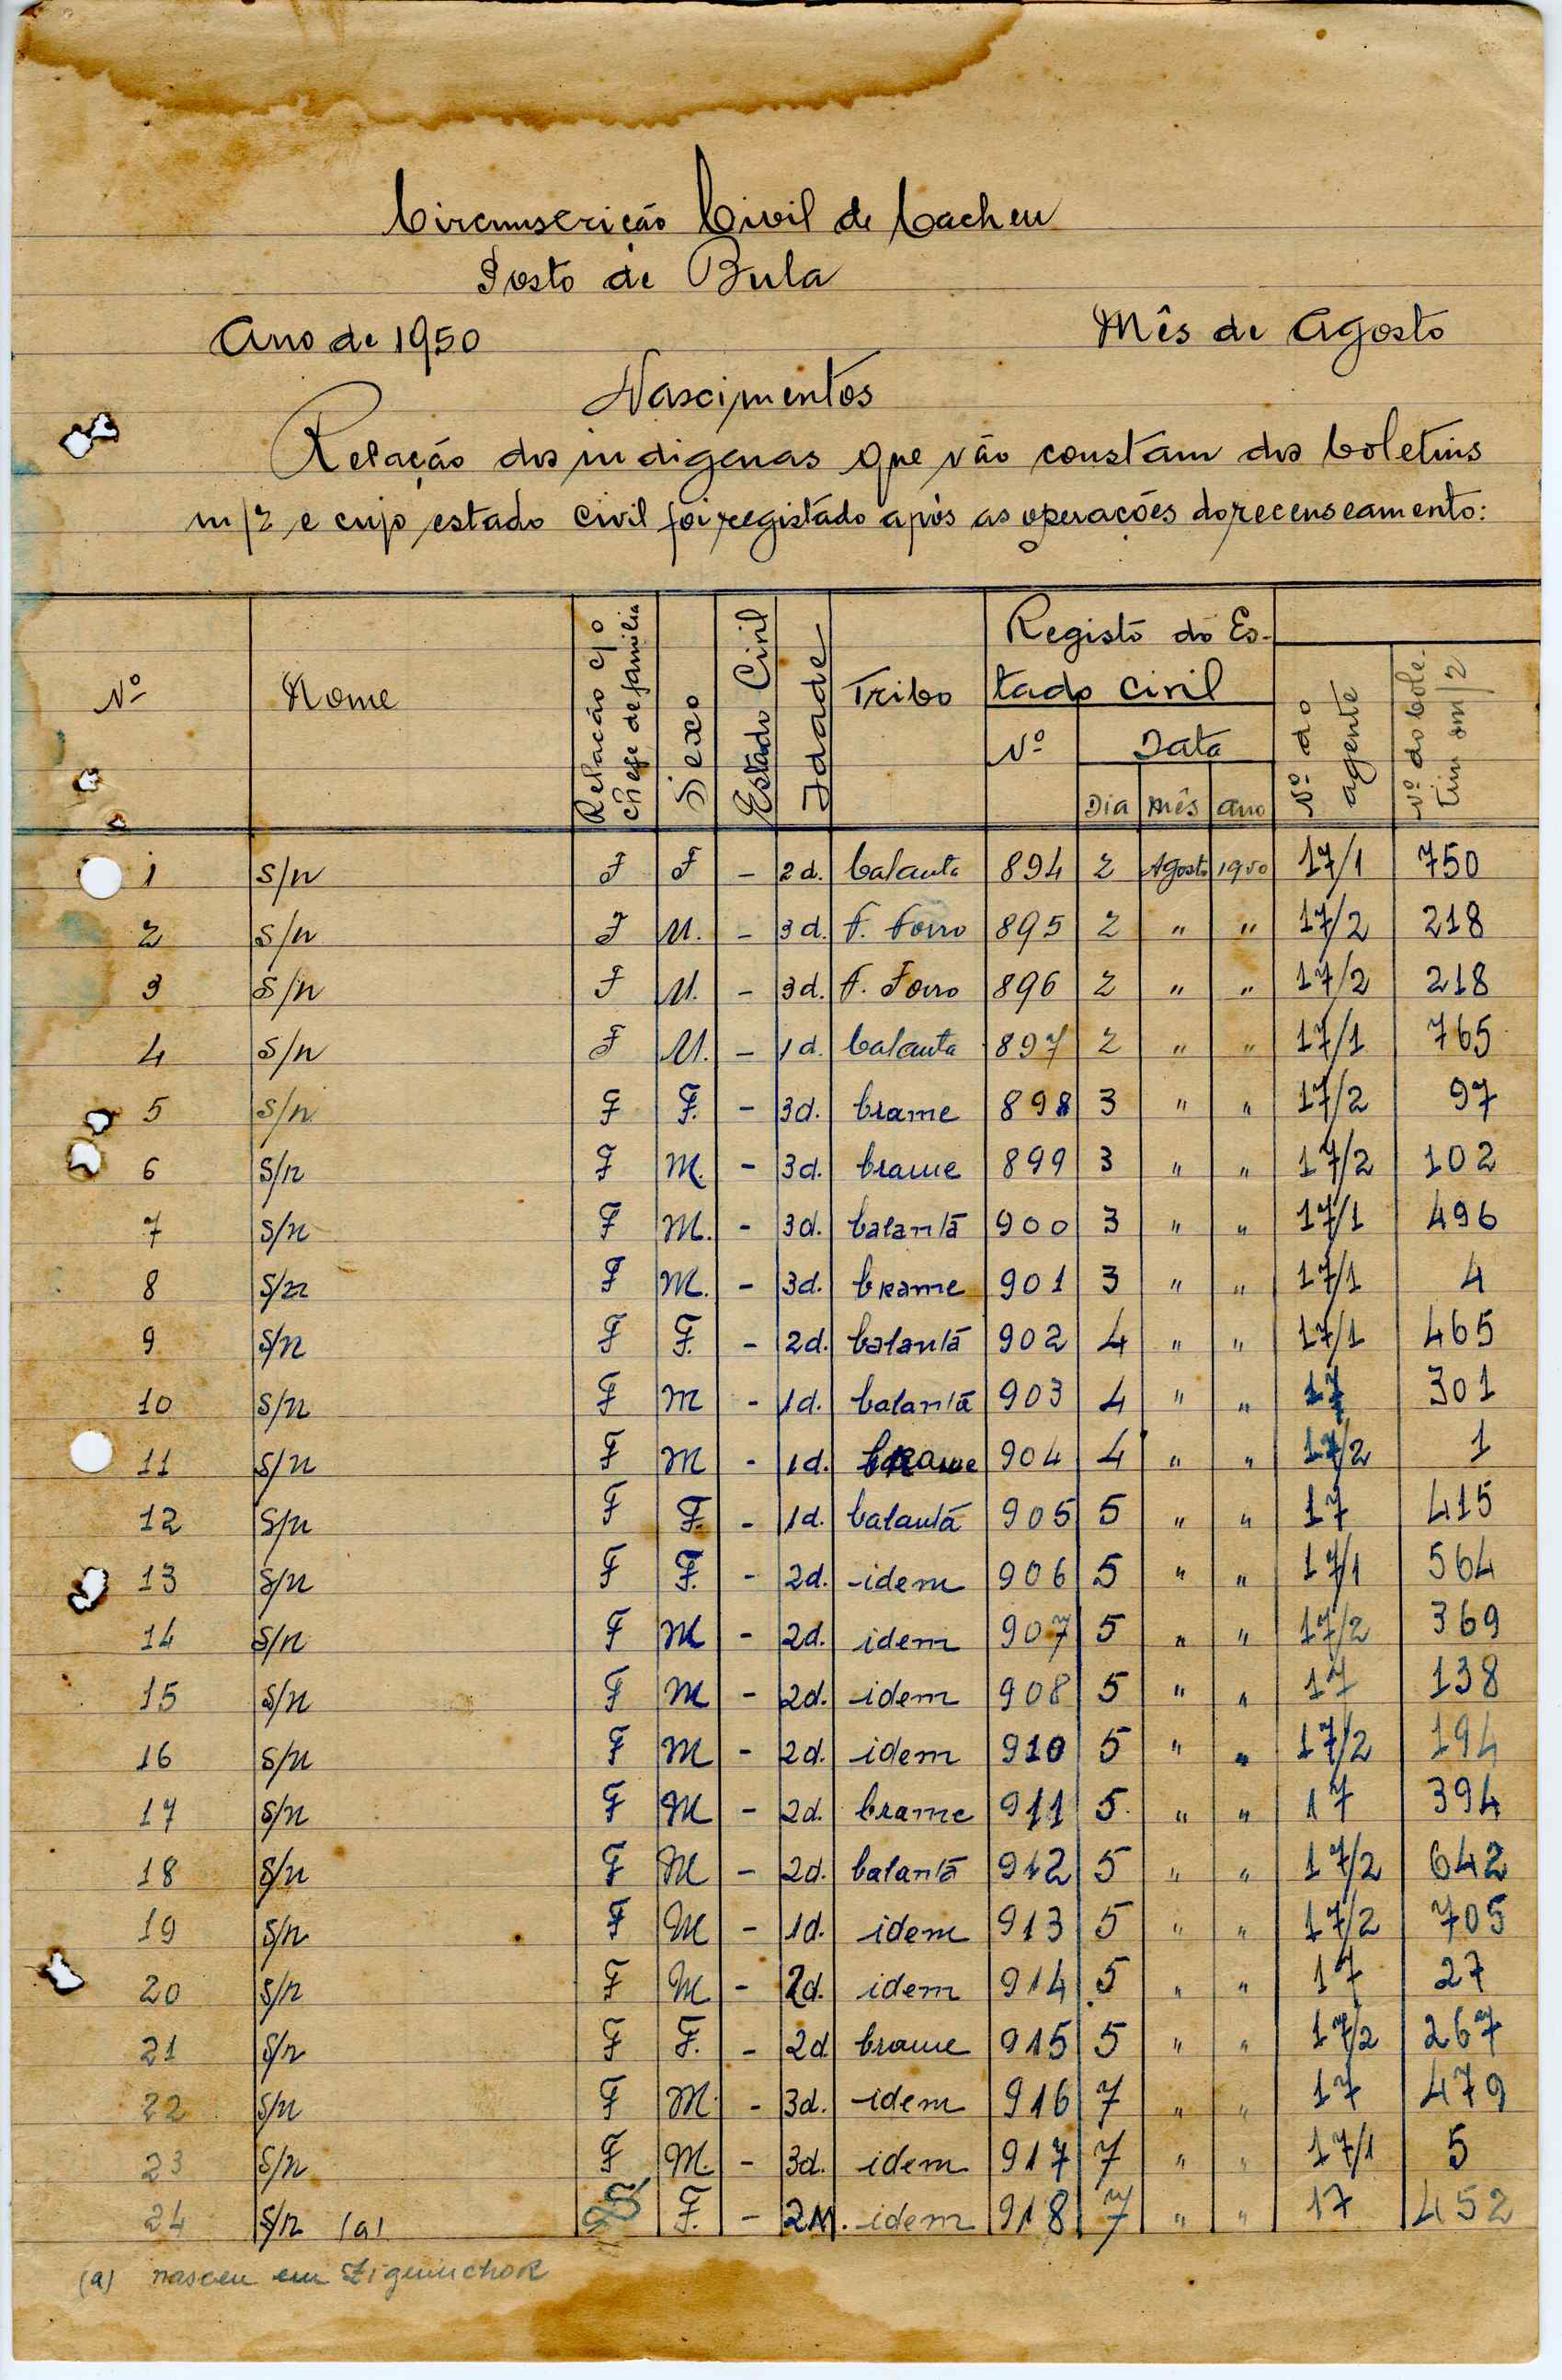 Circunscrição Civil de Cacheu
Posto de Bula
Ano de 1950
Mês de Agosto
Nascimentos
Relação dos indigenas que não constam dos boletins
m/2 e cujo estado civil foi registado após as operações do recenseamento:
Nº Nome Relação c/ o chefe de família Sexo Estado Civil Idade Tribo Registo do Estado civil Nº do agente Nº do boletim m/2
Nº Data
Dia Mês ano
1 S/n F F - 2d. balanta 894 2 Agosto 1950 17/1 750
2 S/n F M. - 3d. F. Forro 895 2 " " 17/2 218
3 S/n F M. - 3d. F. Forro 896 2 " " 17/2 218
4 S/n F M. - 1d. balanta 897 2 " " 17/1 765
5 S/n F F. - 3d. brame 898 3 " " 17/2 97
6 S/n F M. - 3d. brame 899 3 " " 17/2 102
7 S/n F M. - 3d. balantã 900 3 " " 17/1 496
8 S/n F M. - 3d. brame 901 3 " " 17/1 4
9 S/n F F. - 2d. balantã 902 4 " " 17/1 465
10 S/n F M - 1d. balantã 903 4 " " 17 301
11 S/n F M - 1d. brame 904 4 " " 17/2 1
12 S/n F F. - 1d. balantã 905 5 " " 17 415
13 S/n F F. - 2d. -idem 906 5 " " 17/1 564
14 S/n F M - 2d. idem 907 5 " " 17/2 369
15 S/n F M - 2d. idem 908 5 " " 17 138
16 S/n F M - 2d. idem 910 5 " " 17/2 194
17 S/n F M - 2d. brame 911 5. " " 17 394
18 S/n F M - 2d. balantã 912 5 " " 17/2 642
19 S/n F M - 1d. idem 913 5 " " 17/2 705
20 S/n F M - 2d. idem 914 5 " " 17 27
21 S/n F F. - 2d brame 915 5 " " 17/2 267
22 S/n F M. - 3d. idem 916 7 " " 17 479
23 S/n F M. - 3d. idem 917 7 " " 17/1 5
24 S/n (a) F. - 2M. idem 918 7 " " 17 452
(a) nasceu em Ziguinchor